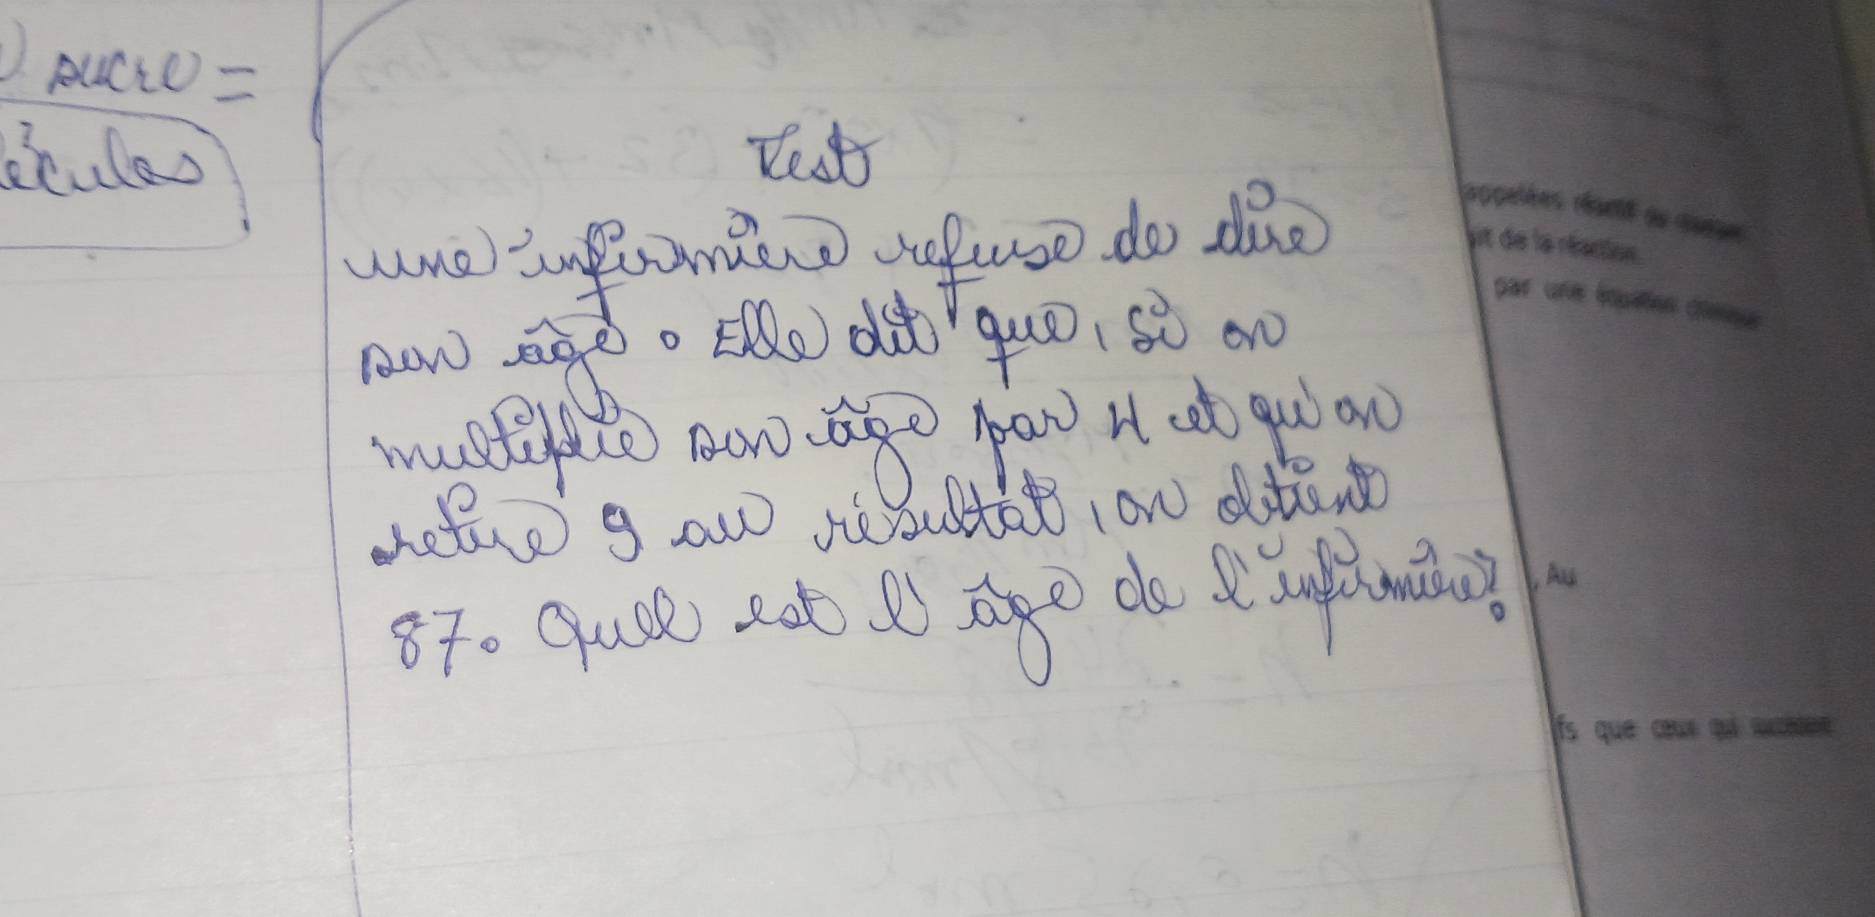 sucre =
Test
une infirmière refuse de dire
son âge. Elle dit que, si on
multiplie son âge par 4 et qu'on
retire 9 au résultat, on obtient
87. Quel est l'âge de l'infirmière?
appelées
it de la réaction
par une équation
. Au
fs que ceux qui